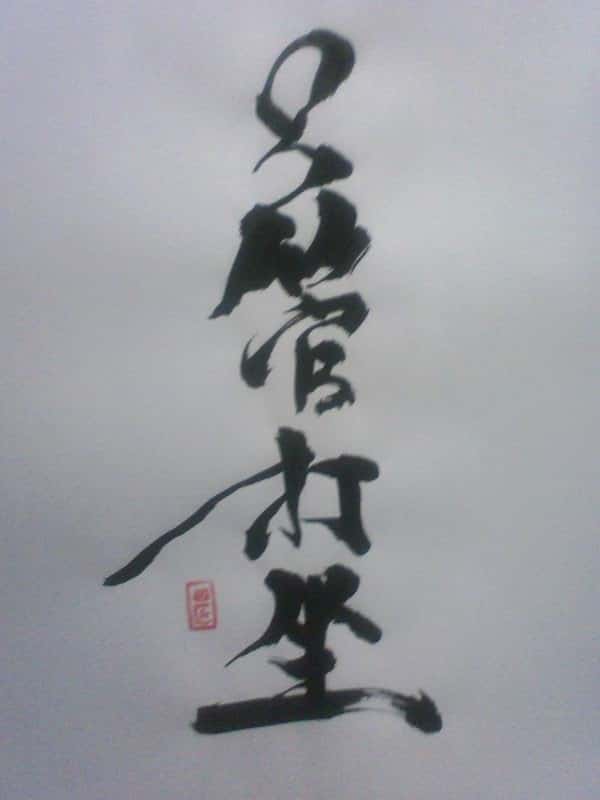 只管打坐